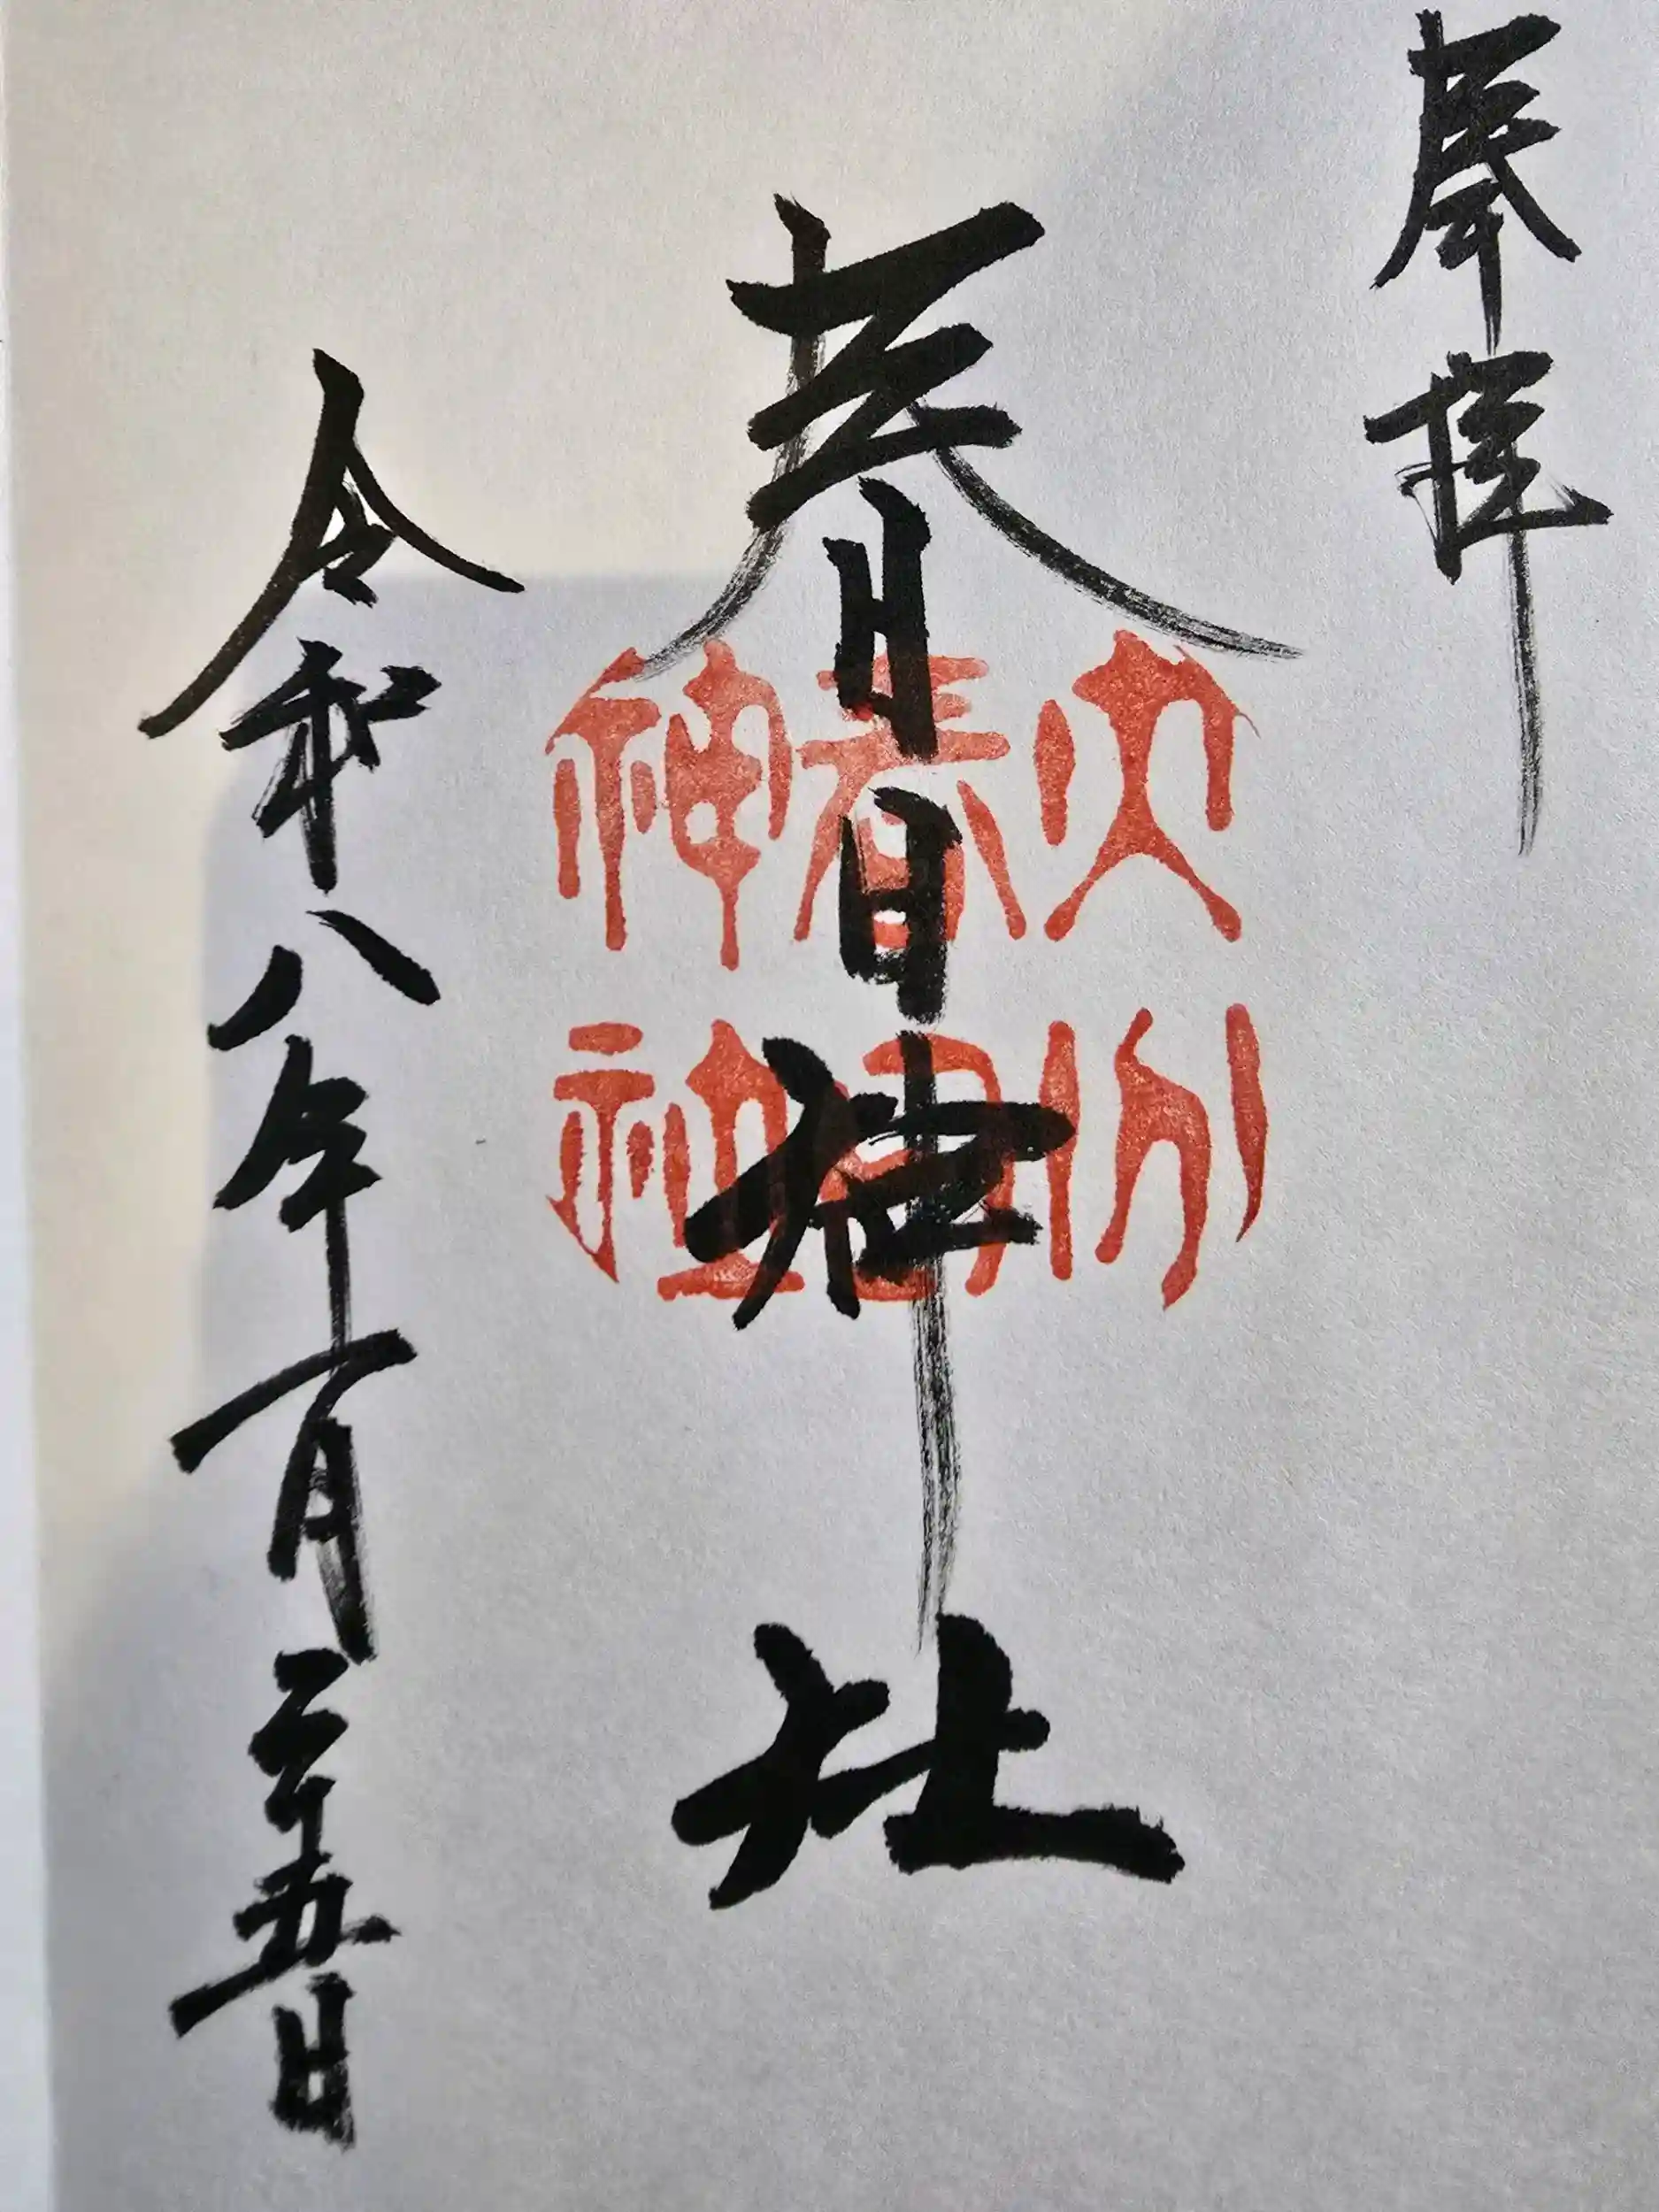 奉拝
春日神社
令和八年一月二十五日
大分
春日
神社